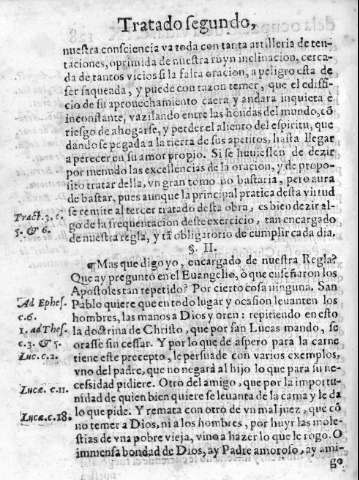 Tratado segundo,
nuestra consciencia va toda con tanta artilleria de ten-
taciones, oprimida de nuestra ruyn inclinacion, cerca-
da de tantos vicios si la falta oracion, a peligro esta de
ser saqueada, y puede con razon temer, que el ediffi-
cio de su aprouechamiento caera y andara inquieta è
inconstante, vazilando entre las hondas del mundo, cõ
riesgo de ahogarse, y perder el aliento del espiritu, que
dando se pegada a la tierra de sus apetitos, hasta llegar
a perecer en su amor propio. Si se huuiessen de dezir
por menudo las excellencias de la oracion, y de propo-
sito tratar della, vn gran tomo no bastaria, pero aura
de bastar, pues aunque la principal pratica desta virtud
se remite al tercer tratado desta obra, es bien dezir al-
go de la frequentacion deste exercicio, tan encargado
de nuestra regla, y tã obligatorio de cumplir cada dia.
Tract. 3. c.
5. & 6.
§. II.
¶Mas que digo yo, encargado de nuestra Regla?
Que ay preguntò en el Euangelio, ò que enseñaron los
Apostoles tan repetido? Por cierto cosa ninguna. San
Pablo quiere que en todo lugar y ocasion leuanten los
hombres, las manos a Dios y oren: repitiendo en esto
la doctrina de Christo, que por san Lucas mando, se
orasse sin cessar. Y por lo que de aspero para la carne
tiene este precepto, le persuade con varios exemplos,
vno del padre, que no negará al hijo lo que para su ne-
cessidad pidiere. Otro del amigo, que por la importu-
nidad de quien bien quiere se leuanta de la cama y le da
lo que pide. Y remata con otro de vn mal juez, que cõ
no temer a Dios, ni a los hombres, por huyr las mole-
stias de vna pobre vieja, vino a hazer lo que le rogo. O
immensa bondad de Dios, ay Padre amoroso, ay ami-
go
Ad Ephes.
c.6.
1. ad Thes.
c.3. & 5.
Luc. c.2.
Lucæ. c.11.
Lucæ. c.18.